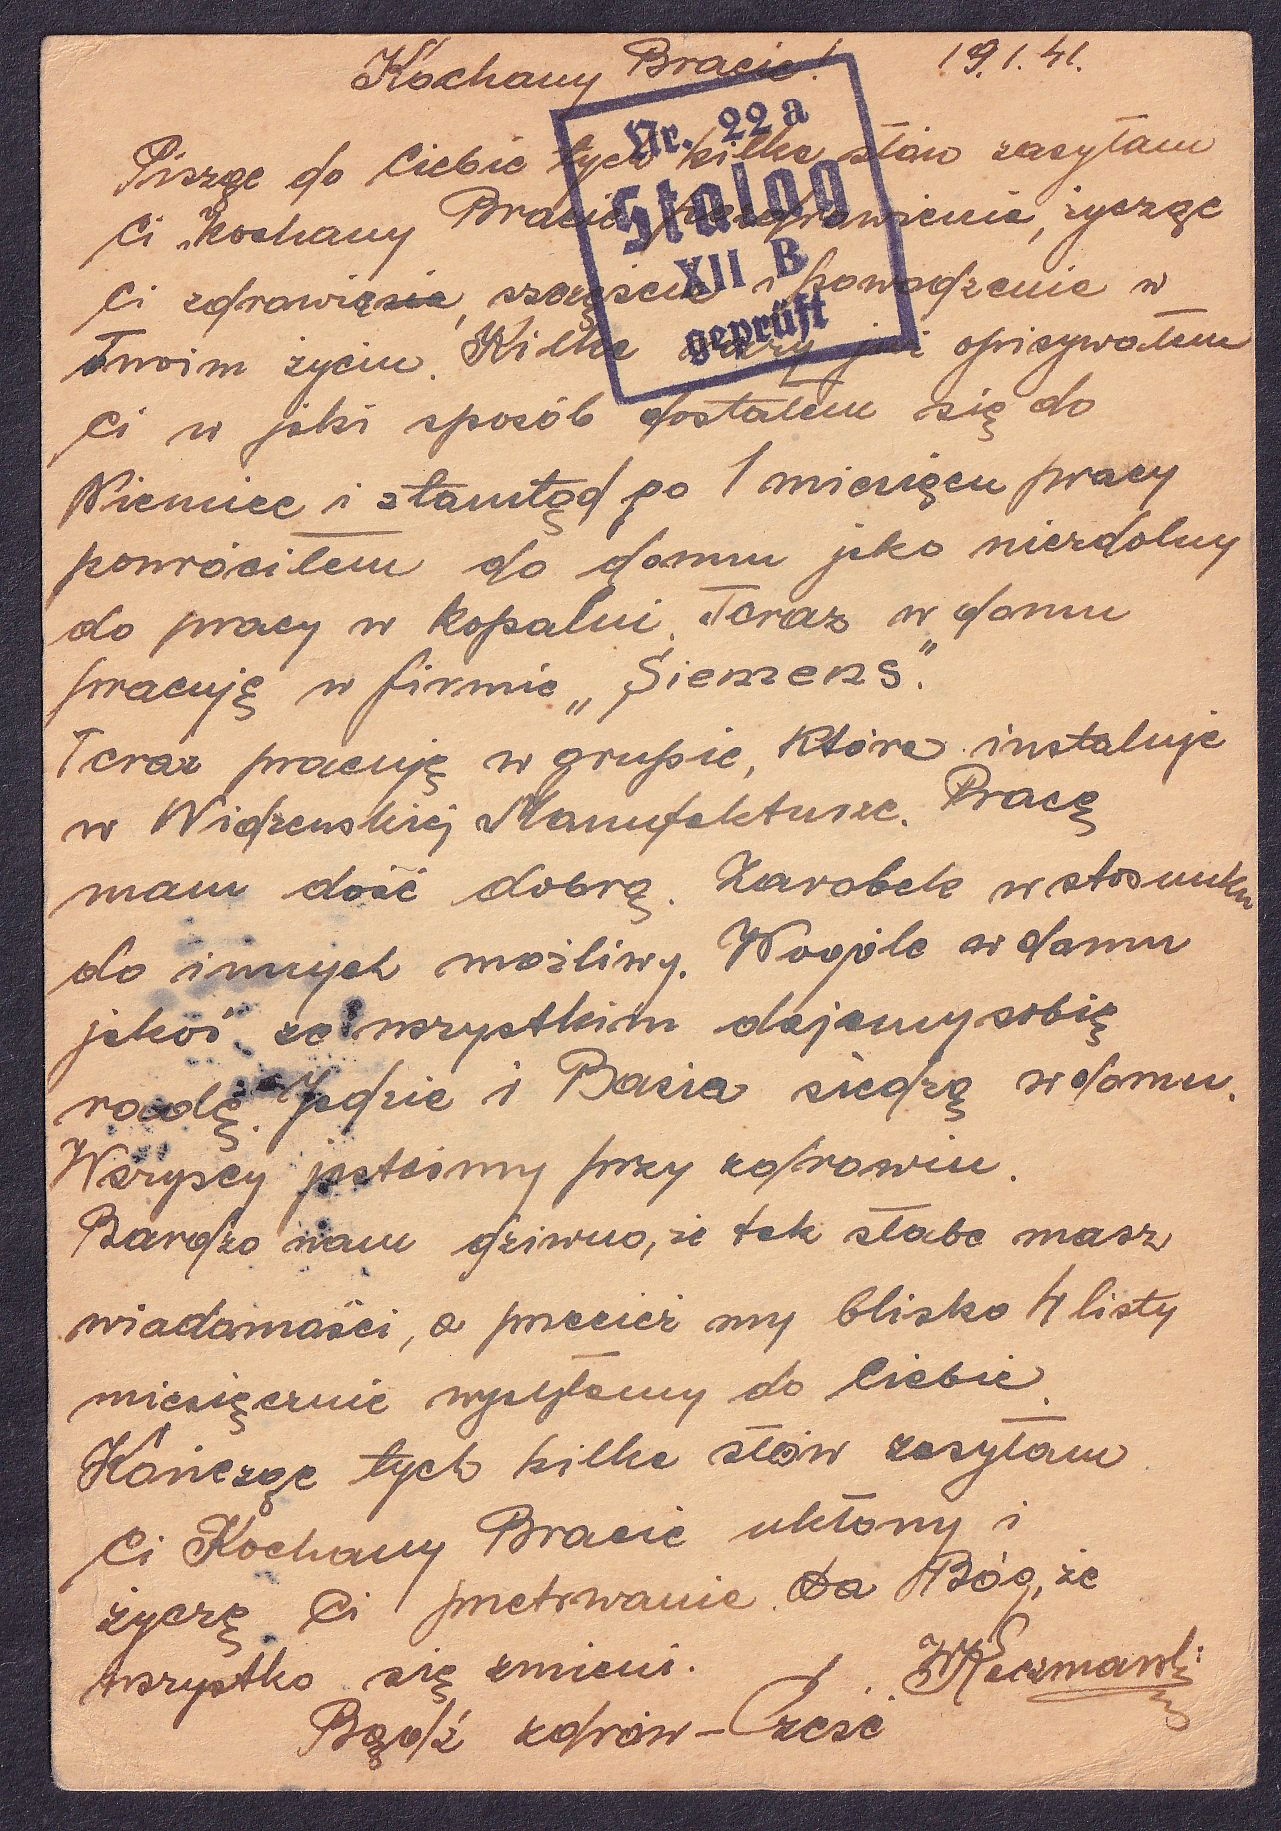 Kochany Bracie! 19.1.41.
Nr. 22a
Stalag
XII B
geprüft
Pisząc do Ciebie tych kilka słów zasyłam
Ci kochany Bracie pozdrowienia, życząc
Ci zdrowia, szczęścia i powodzenia w
Twoim życiu. Kilka razy już opisywałem
Ci w jaki sposób dostałem się do
Niemiec i stamtąd po 1 miesiącu pracy
powróciłem do domu jako niezdolny
do pracy w kopalni. Teraz w domu
pracuję w firmie „Siemens”.
Teraz pracuję w grupie, która instaluje
w Widzewskiej Manufakturze. Pracę
mam dość dobrą. Zarobek w stosunku
do innych możliwy. Wogóle w domu
jakoś ze wszystkim dajemy sobię
radę. Jadzia i Basia siedzą w domu.
Wszyscy jesteśmy przy zdrowiu.
Bardzo nam dziwno, że tak słabo masz
wiadomości, a przecież my blisko 4 listy
miesięcznie wysyłamy do Ciebie.
Kończąc tych kilka słów zasyłam
Ci Kochany Bracie ukłony i
życzę Ci przetrwania. Da Bóg, że
wszystko się zmieni.
Bądź zdrów – Cześć